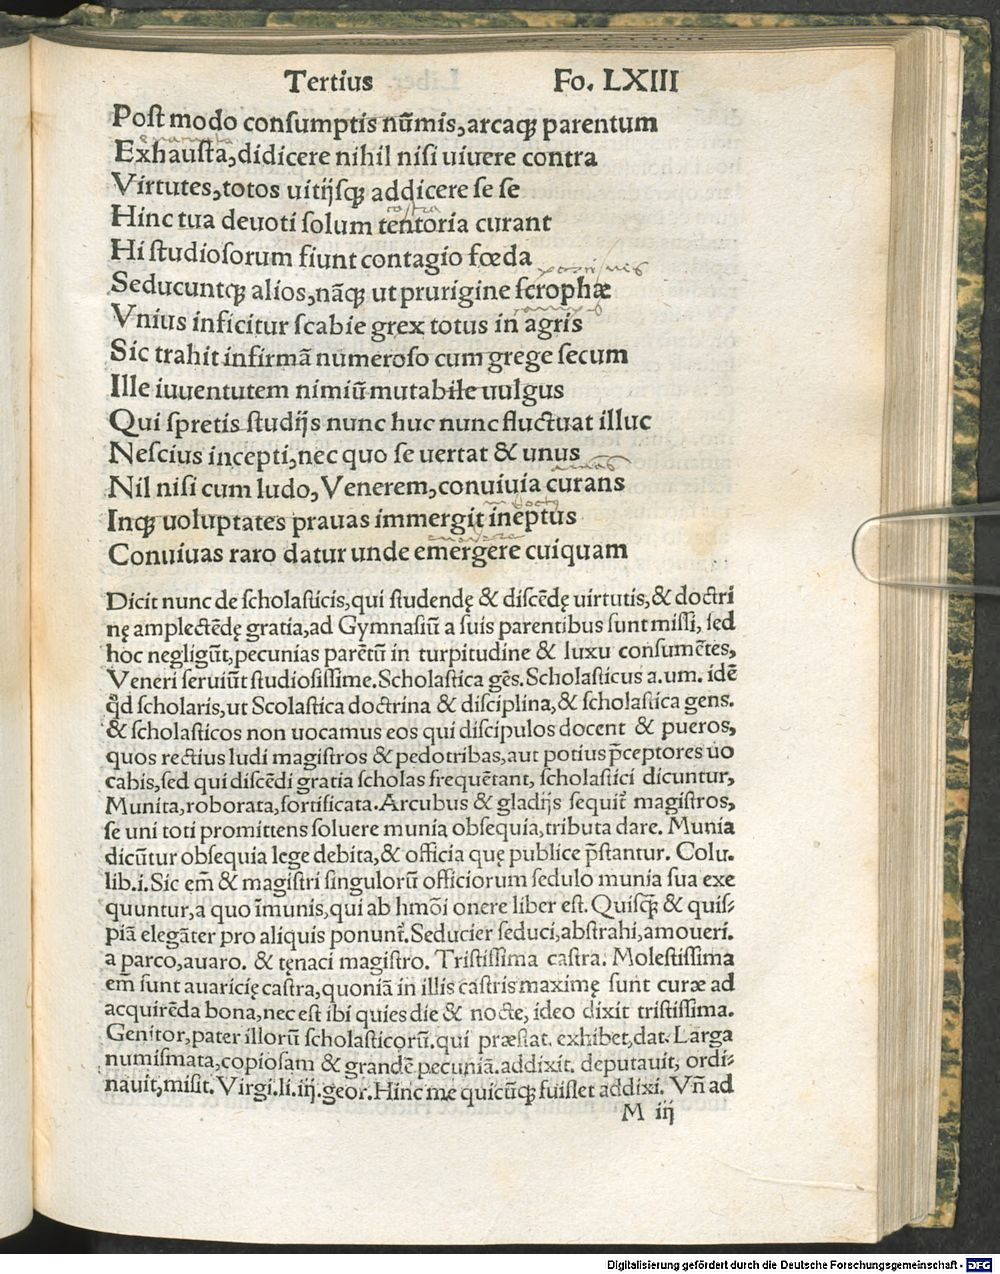 Tertius Fo. LXIII
Poſt modo conſumptis nũmis, arcaqꝫ parentum
Exhauſta, didicere nihil niſi uiuere contra
Virtutes, totos uitijſqꝫ addicere ſe ſe
castra
Hinc tua deuoti ſolum tentoria curant
Hi ſtudioſorum fiunt contagio fœda
Seducuntqꝫ alios, nãqꝫ ut prurigine ſcrophæ
Vnius inficitur ſcabie grex totus in agris
Sic trahit infirmã numeroſo cum grege ſecum
Ille iuuentutem nimiũ mutabile uulgus
Qui ſpretis ſtudijs nunc huc nunc fluctuat illuc
Neſcius incepti, nec quo ſe uertat & unus
Nil niſi cum ludo, Venerem, conuiuia curans
Inqꝫ uoluptates prauas immergit ineptus
Conuiuas raro datur unde emergere cuiquam
Dicit nunc de ſcholaſticis, qui ſtudendę & diſcẽdę uirtutis, & doctri
nę amplectẽdę gratia, ad Gymnaſiũ a ſuis parentibus ſunt miſſi, ſed
hoc negligũt, pecunias parẽtũ in turpitudine & luxu conſumẽtes,
Veneri ſeruiũt ſtudioſiſſime. Scholaſtica gẽs. Scholaſticus a.um. idẽ
qd̃ ſcholaris, ut Scolaſtica doctrina & diſciplina, & ſcholaſtica gens.
& ſcholaſticos non uocamus eos qui diſcipulos docent & pueros,
quos rectius ludi magiſtros & pedotribas, aut potius p̃ceptores uo
cabis, ſed qui diſcẽdi gratia ſcholas frequẽtant, ſcholaſtici dicuntur,
Munita, roborata, fortificata. Arcubus & gladijs ſequit᷑ magiſtros,
ſe uni toti promittens ſoluere munia obſequia, tributa dare. Munia
dicũtur obſequia lege debita, & officia quę publice p̃ſtantur. Colu.
lib.i. Sic em̃ & magiſtri ſingulorũ officiorum ſedulo munia ſua exe
quuntur, a quo ĩmunis, qui ab hmõi onere liber eſt. Quiſqꝫ & quiſ⸗
piã elegãter pro aliquis ponunt᷑. Seducier ſeduci, abſtrahi, amoueri.
a parco, auaro. & tęnaci magiſtro. Triſtiſſima caſtra. Moleſtiſſima
em̃ ſunt auaricię caſtra, quoniã in illis caſtris maximę ſunt curæ ad
acquirẽda bona, nec eſt ibi quies die & nocte, ideo dixit triſtiſſima.
Genitor, pater illorũ ſcholaſticorũ. qui præſtat. exhibet, dat. Larga
numiſmata, copioſam & grandẽ pecuniã. addixit. deputauit, ordi⸗
nauit, miſit. Virgi. li. iij. geor. Hinc me quicũqꝫ fuiſſet addixi. Vñ ad
M iij
Digitalisierung gefördert durch die Deutsche Forschungsgemeinschaft - DFG